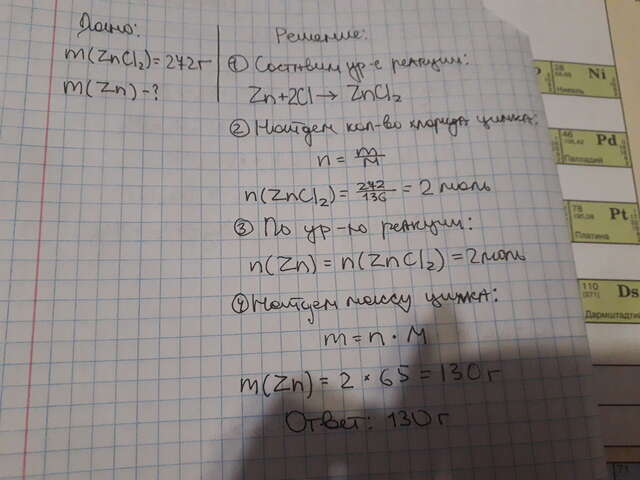 Дано:
m(ZnCl₂)=272г
m(Zn)-?
Решение:
① Составим ур-е реакции:
Zn+2Cl→ZnCl₂
② Найдем кол-во хлорида цинка:
n = m/M
n(ZnCl₂) = 272/136 = 2 моль
③ По ур-ю реакции:
n(Zn) = n(ZnCl₂) = 2моль
④ Найдем массу цинка:
m = n · M
m(Zn) = 2 * 65 = 130 г
Ответ: 130 г
28
Ni
Никель
46
Pd
Палладий
78
Pt
Платина
110
(271)
Ds
Дармштадтий